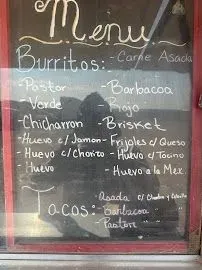 Menu
Burritos: - Carne Asada
- Pastor - Barbacoa
- Verde - Rojo
- Chicharron - Brisket
- Huevo c/Jamon - Frijoles c/Queso
- Huevo c/Chorizo - Huevo c/Tocino
- Huevo - Huevo a la Mex.
Tacos: - Asada c/
- Barbacoa " "
- Pastor " "